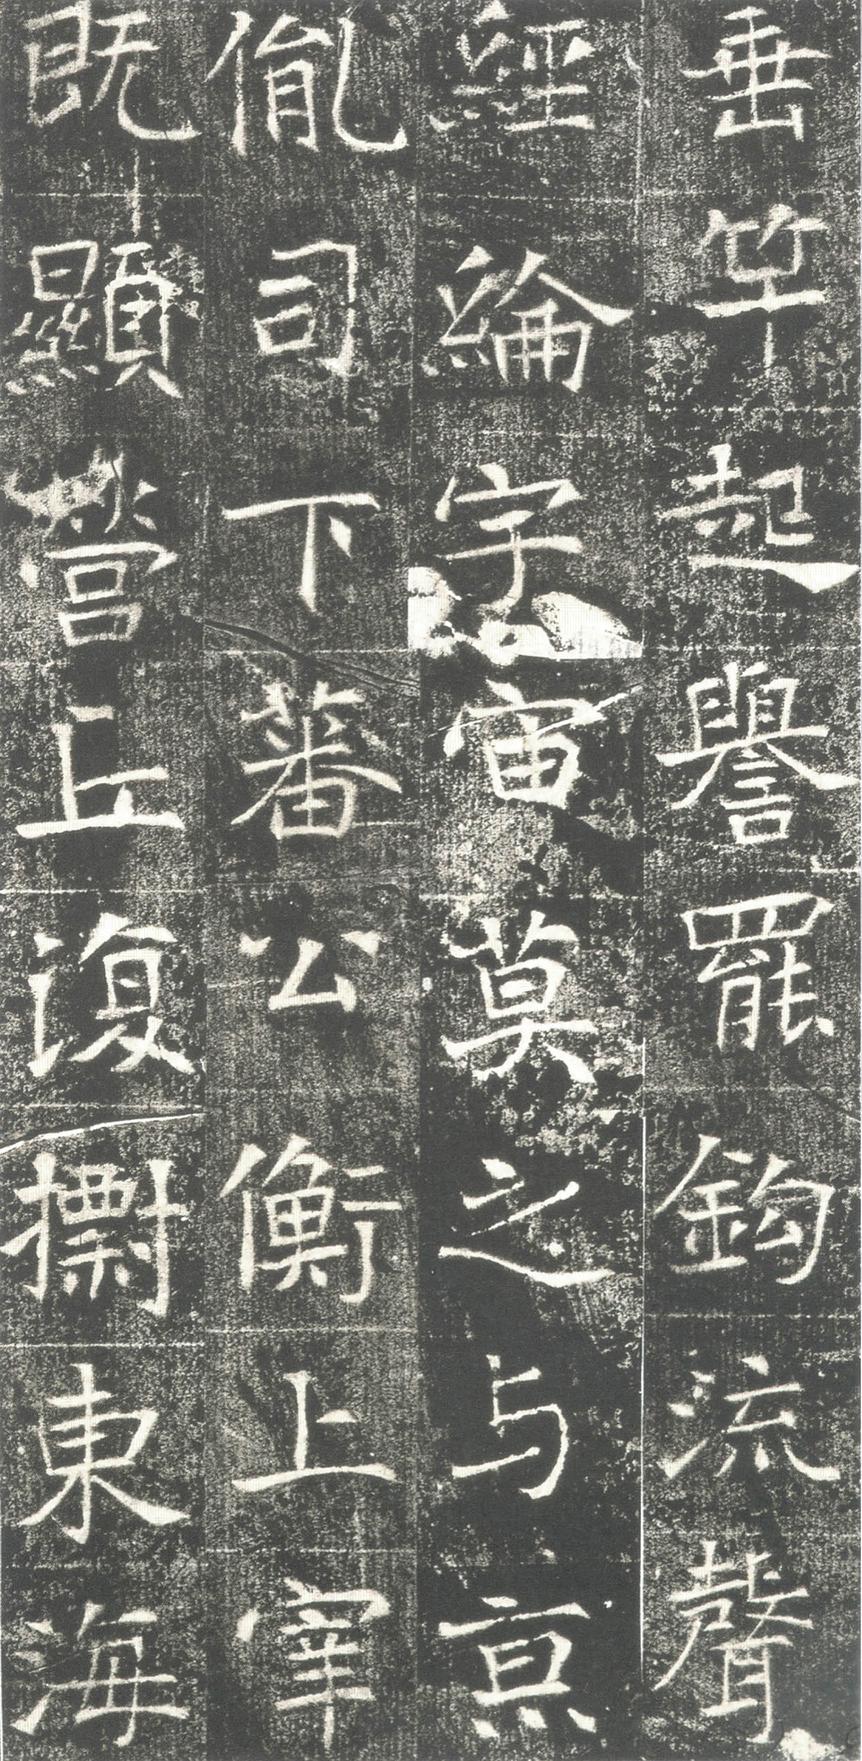 垂竿起譽罷鈎流聲
經綸宇宙莫之与亰
胤司下蕃公衡上宰
既顯營丘復摽東海